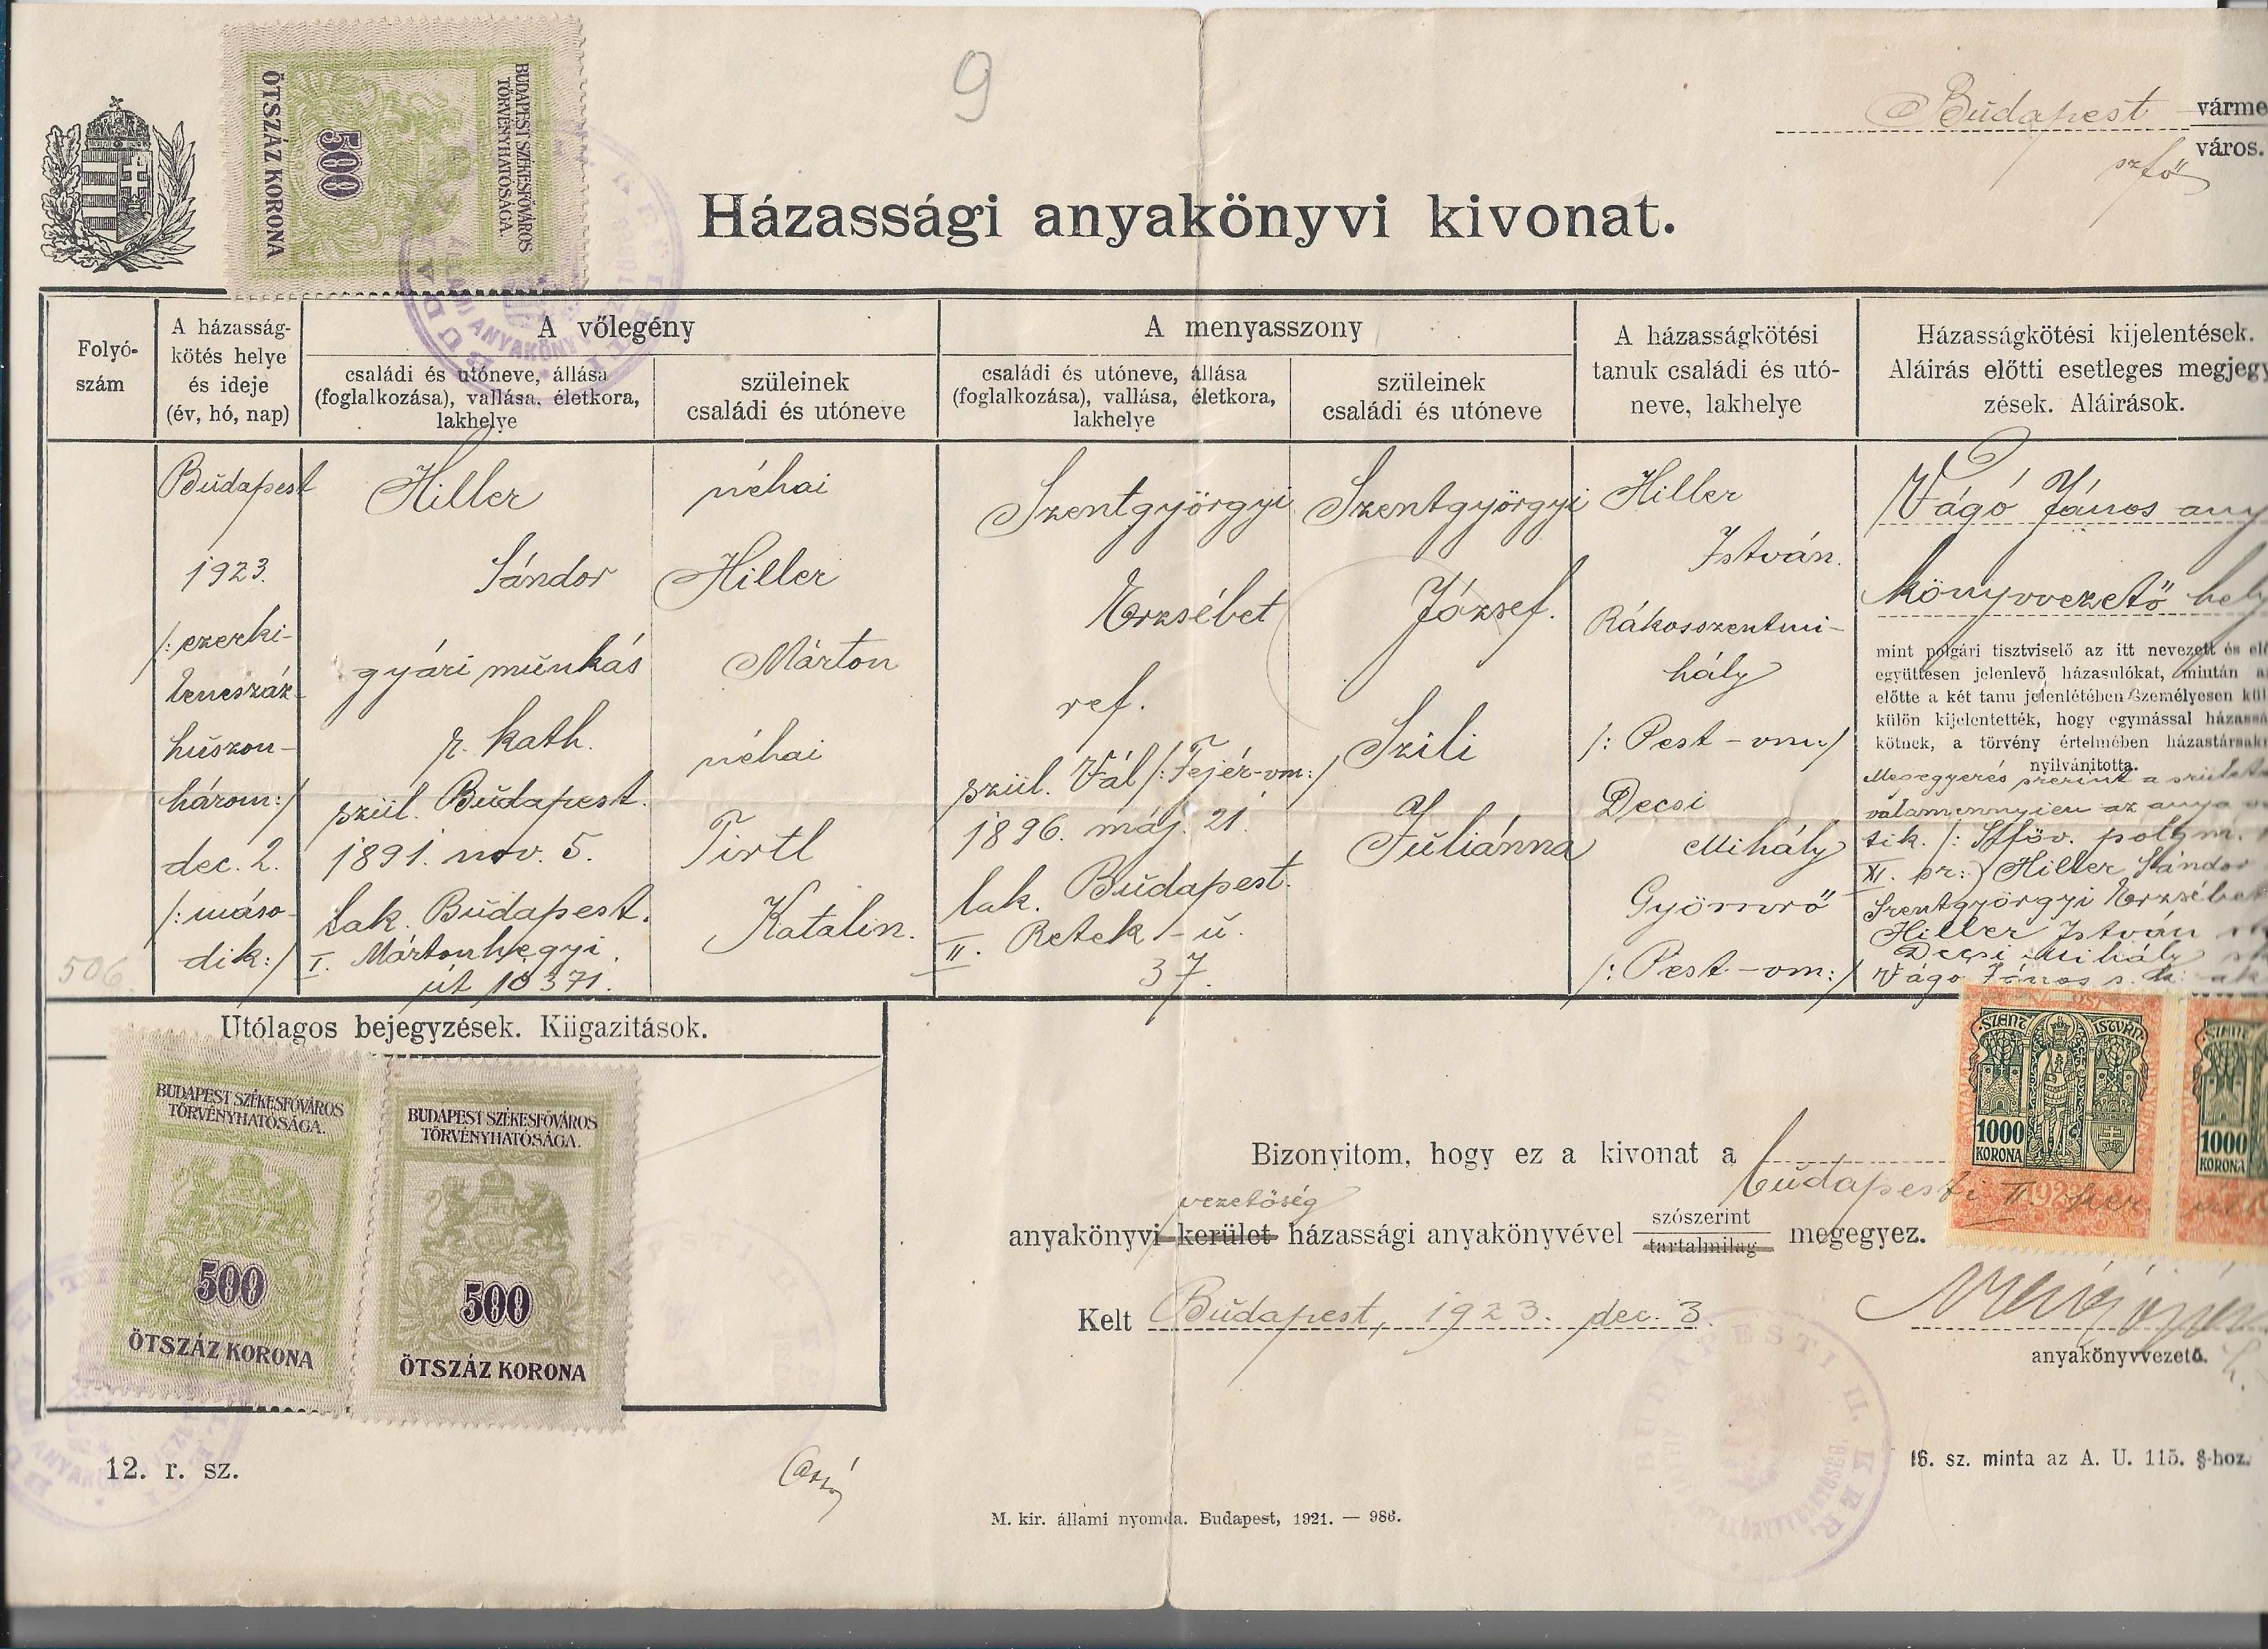 9
Budapest várme
szfő város.
BUDAPEST SZÉKESFŐVÁROS
TÖRVÉNYHATÓSÁGA.
500
ÖTSZÁZ KORONA
Házassági anyakönyvi kivonat.
Folyó-
szám
A házasság-
kötés helye
és ideje
(év, hó, nap)
A vőlegény
családi és utóneve, állása
(foglalkozása), vallása, életkora,
lakhelye
szüleinek
családi és utóneve
A menyasszony
családi és utóneve, állása
(foglalkozása), vallása, életkora,
lakhelye
szüleinek
családi és utóneve
A házasságkötési
tanuk családi és utó-
neve, lakhelye
Házasságkötési kijelentések.
Aláirás előtti esetleges megjegy
zések. Aláirások.
506.
Budapest
1923.
/: ezerki-
lencszáz-
huszon-
három:/
dec. 2.
/: máso-
dik:/
Hiller
Sándor
gyári munkás
r. kath.
szül. Budapest.
1891. nov. 5.
lak. Budapest.
I. Mártonhegyi
út 10371.
néhai
Hiller
Márton
néhai
Tirtl
Katalin.
Szentgyörgyi
Erzsébet
ref.
szül. Vál /: Fejér-vm:/
1896. máj. 21.
lak. Budapest.
II. Retek-u.
37.
Szentgyörgyi
József.
Szili
Juliánna
Hiller
István.
Rákosszentmi-
hály
/: Pest-vm:/
Decsi
Mihály
Gyömrő
/: Pest-vm:/
Vágó János any
könyvvezető hely
mint polgári tisztviselő az itt nevezett és elő
együttesen jelenlevő házasulókat, miután a
előtte a két tanu jelenlétében személyesen kül
külön kijelentették, hogy egymással házassá
kötnek, a törvény értelmében házastársakn
nyilvánitotta.
Megegyezés szerint a szület
valamennyien az anya v
tik. /: Szföv. polg m.
XI. br:/ Hiller Sándor
Szentgyörgyi Erzsébet
Hiller István
Decsi Mihály
Vágó János s. k.
Utólagos bejegyzések. Kiigazitások.
BUDAPEST SZÉKESFŐVÁROS
TÖRVÉNYHATÓSÁGA.
500
ÖTSZÁZ KORONA
BUDAPEST SZÉKESFŐVÁROS
TÖRVÉNYHATÓSÁGA.
500
ÖTSZÁZ KORONA
SZENT ISTVÁN
1000
KORONA
1923
1000
KORONA
Bizonyitom, hogy ez a kivonat a budapesti II ker.
vezetőség
anyakönyvi kerület házassági anyakönyvével szószerint megegyez.
tartalmilag
Kelt Budapest, 1923. dec. 3.
anyakönyvvezető.
h.
BUDAPESTI II. KER.
12. r. sz.
16. sz. minta az A. U. 115. §-hoz.
M. kir. állami nyomda. Budapest, 1921. — 986.